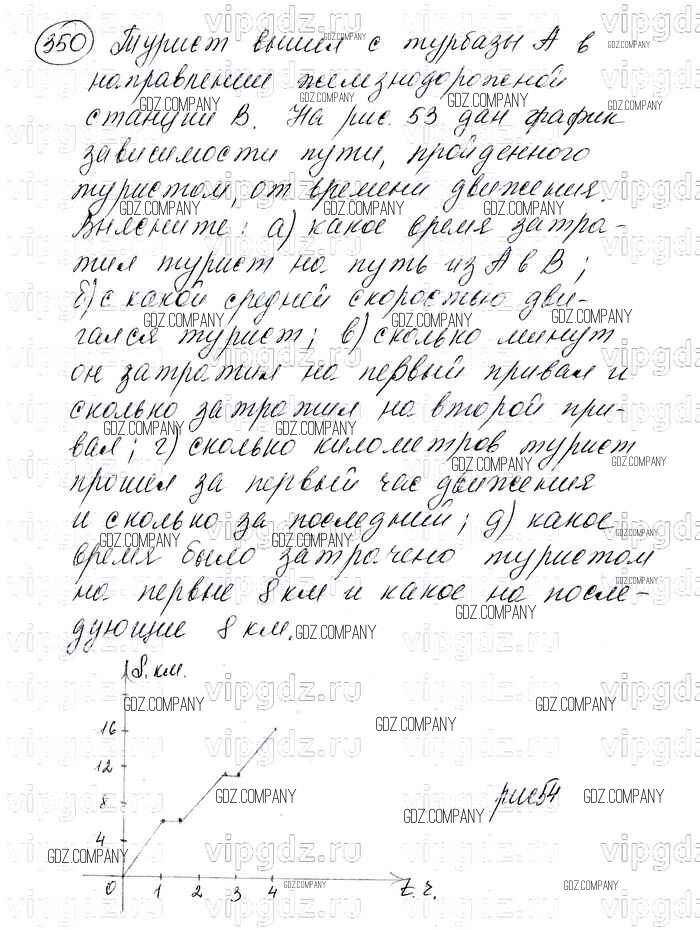 350 Турист вышел с турбазы А в
направлении железнодорожной
станции В. На рис. 53 дан график
зависимости пути, пройденного
туристом, от времени движения.
Выясните: а) какое время затра-
тил турист на путь из А в В;
б) с какой средней скоростью дви-
гался турист; в) сколько минут
он затратил на первый привал и
сколько затратил на второй при-
вал; г) сколько километров турист
прошел за первый час движения
и сколько за последний; д) какое
время было затрачено туристом
на первые 8 км и какое на после-
дующие 8 км.
S, км.
16
12
8
4
0 1 2 3 4 t, г.
рис 54
vipgdz.ru
GDZ.COMPANY